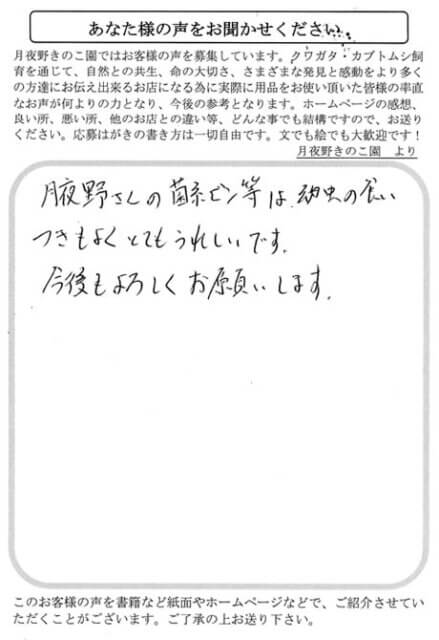 あなた様の声をお聞かせください
月夜野きのこ園ではお客様の声を募集しています。クワガタ・カブトムシ飼
育を通じて、自然との共生、命の大切さ、さまざまな発見と感動をより多く
の方達にお伝え出来るお店になる為に実際に用品をお使い頂いた皆様の率直
なお声が何よりの力となり、今後の参考となります。ホームページの感想、
良い所、悪い所、他のお店との違い等、どんな事でも結構ですので、お送り
ください。応募はがきの書き方は一切自由です。文でも絵でも大歓迎です！
月夜野きのこ園　より
月夜野さんの菌糸ビン等は、幼虫の食い
つきもよくとてもうれしいです。
今後もよろしくお願いします。
このお客様の声を書籍など紙面やホームページなどで、ご紹介させてい
ただくことがございます。ご了承の上お送り下さい。